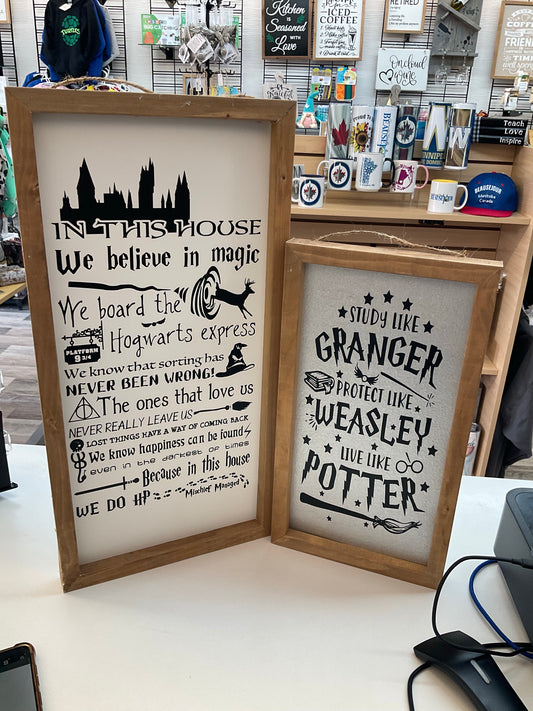 IN THIS HOUSE
We believe in magic
We board the
Hogwarts express
PLATFORM
9 3/4
We know that sorting has
NEVER BEEN WRONG!
The ones that love us
NEVER REALLY LEAVE US
LOST THINGS HAVE A WAY OF COMING BACK
We know happiness can be found
even in the darkest of times
Because in this house
WE DO HP
Mischief Managed
STUDY LIKE
GRANGER
PROTECT LIKE
WEASLEY
LIVE LIKE
POTTER
Kitchen
is Seasoned
with Love
ICED
COFFEE
RETIRED
On cloud
wine
FRIEND
Teach
Love
Inspire
BEAUSEJOUR
Manitoba
Canada